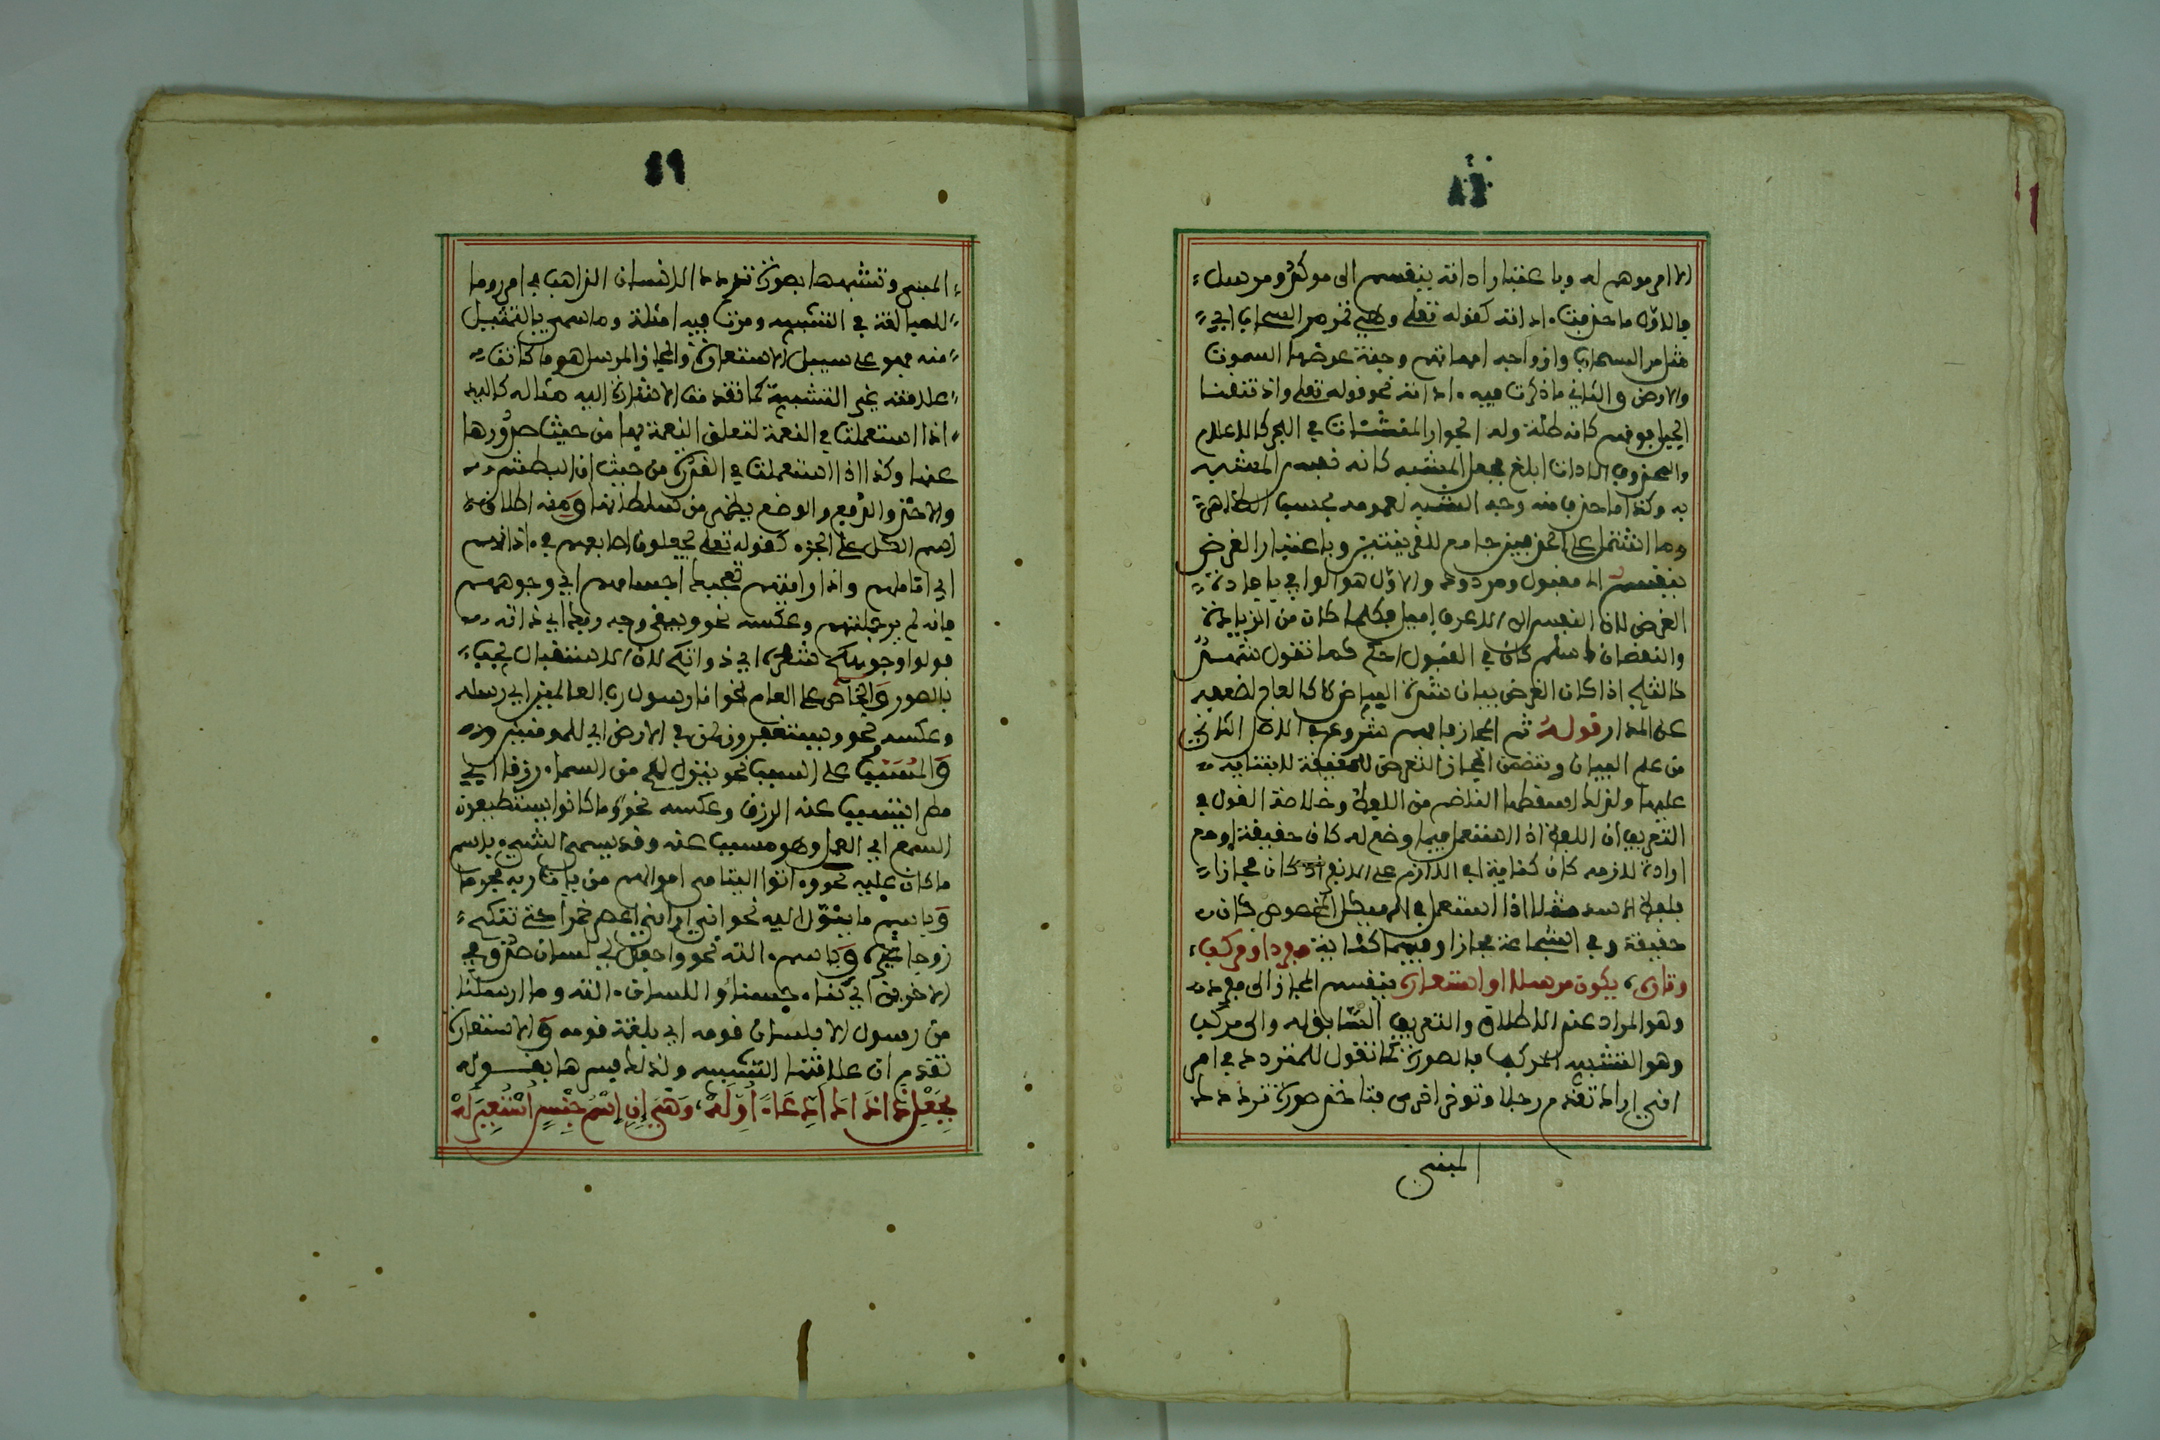 ٤٨
الامر موهم له وباعتبار اداته ينقسم الى موكد ومرسل
فالاول ما حذفت اداته كقوله تعلى وهي تمر مر السحاب اي
مثل مر السحاب وازواجه امهاتهم وجنة عرضها السموت
والارض والثاني ما ذكرت فيه اداته نحو قوله تعلى واذ نتقنا
الجبل فوقهم كانه ظلة وله الجوار المنشئات في البحر كالاعلام
والمحذوف الادات ابلغ لجعل المشبه كانه نفس المشبه
به وكذا ما حذف منه وجه الشبه لعمومه بحسب الظاهر
وما اشتمل على الحذفين جامع للفريقتين وباعتبار الغرض
ينقسم الى مقبول ومردود والاول هو الوافي بافادة
الغرض لان النفس الى الاعرف اميل فكلما كان من الزيادة
والنقصان اسلم كان في القبول احكم كما تقول شمس
كالثلج اذا كان الغرض بيان شدة البياض لا كالعاج لضعفه
على المدار قوله ثم المجاز فافهم شروع في الاصل الثاني
من علم البيان ويتضمن المجاز التعرض للحقيقة لابتنايه
عليها ولذلك اسقطها الناظم من اللفظ وخلاصة القول في
التعريف ان اللفظ اذا استعمل فيما وضع له كان حقيقة او مع
ارادة لازمه كان كناية او اللازم على كان مجازا
بلفظ الاسد مثلا اذا استعمل في الهيكل المخصوص كان
حقيقة وفي الشجاعة مجازا وفيهما كناية مفردا ومركبا
وتارة يكون مرسلا او استعارة ينقسم المجاز الى مفرد
وهو المراد عند الاطلاق والتعريف السابق له والى مركب
وهو التشبيه المركب بالصورة كما تقول للمتردد في امر
اني اراك تقدم رجلا وتوخر اخرى فتاخذ صورة تردد
المفتي
٤٩
المفتي وتشبهها بصورة تردد الانسان الذاهب في امر وما
للمبالغة في التشبيه ومرت فيه امثلة وما سمي بالتمثيل
منه فهو على سبيل الاستعارة والمجاز المرسل هو ما كانت
علاقته غير التشبيه كما تقدمت الاشارة اليه مثاله كاليد
اذا استعملت في النعمة لتعلق النعمة بها من حيث صدورها
عنها وكذا اذا استعملت في القدرة من حيث ان البطش
والاخذ والرفع والوضع يظهر من سلطانها ومنه اطلاق
اسم الكل على الجزء كقوله تعلى يجعلون اصابعهم في اذانهم
اي اناملهم واذا رايتهم تعجبك اجسامهم اي وجوههم
فانه لم ير جملتهم وعكسه نحو ويبقى وجه ربك اي ذاته
فولوا وجوهكم شطره اي ذواتكم لان الاستقبال يجب
بالصدور والخاص على العام نحو انا رسول رب العالمين اي رسله
وعكسه نحو ويستغفرون لمن في الارض اي للمومنين
والمسبب على السبب نحو ينزل لكم من السماء رزقا اي
مطرا يتسبب عنه الرزق وعكسه نحو ما كانوا يستطيعون
السمع اي العمل وهو مسبب عنه وقد يسمى الشيء باسم
ما كان عليه نحو واتوا اليتامى اموالهم من يات ربه مجرما
وباسم ما يئول اليه نحو اني اراني اعصر خمرا حتى تنكح
زوجا غيره وباسم الته نحو واجعل لي لسان صدق في
الاخرين اي ثناء حسنا واللسان الته وما ارسلنا
من رسول الا بلسان قومه اي بلغة قومه والاستعارة
تقدم ان علاقتها التشبيه ولذلك فسرها بقوله
بجعل ذا ذاك ادعاء اوله وهي ان اسم جنس استعير له